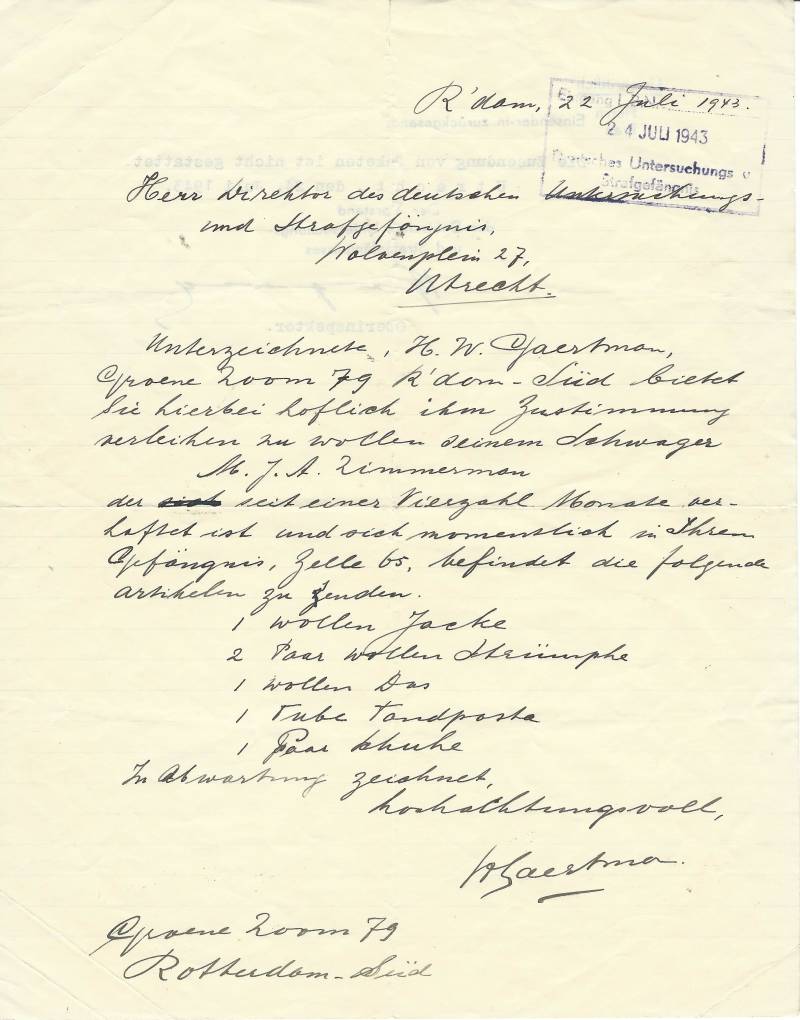 R'dam, 22 Juli 1943.
Eingegangen
24 JULI 1943
Deutsches Untersuchungs u
Strafgefängnis
Herr Direktor des deutschen Untersuchungs-
und Strafgefängnis,
Wolvenplein 27,
Utrecht.
Unterzeichnete, H. W. Gaertman,
Groene Zoom 79 R'dam-Süd bietet
Sie hierbei hoflich ihm Zustimmung
verleihen zu wollen seinem Schwager
M. J. A. Zimmerman
der seit einer Vierzahl Monate ver-
haftet ist und sich momentlich in Ihrem
Gefängnis, Zelle 65, befindet die folgende
artikelen zu zenden.
1 wollen Jacke
2 Paar wollen Strümphe
1 wollen Das
1 Tube Tandpasta
1 Paar Schuhe
In Abwartung zeichnet,
hochachtungsvoll,
HGaertman.
Groene Zoom 79
Rotterdam-Süd